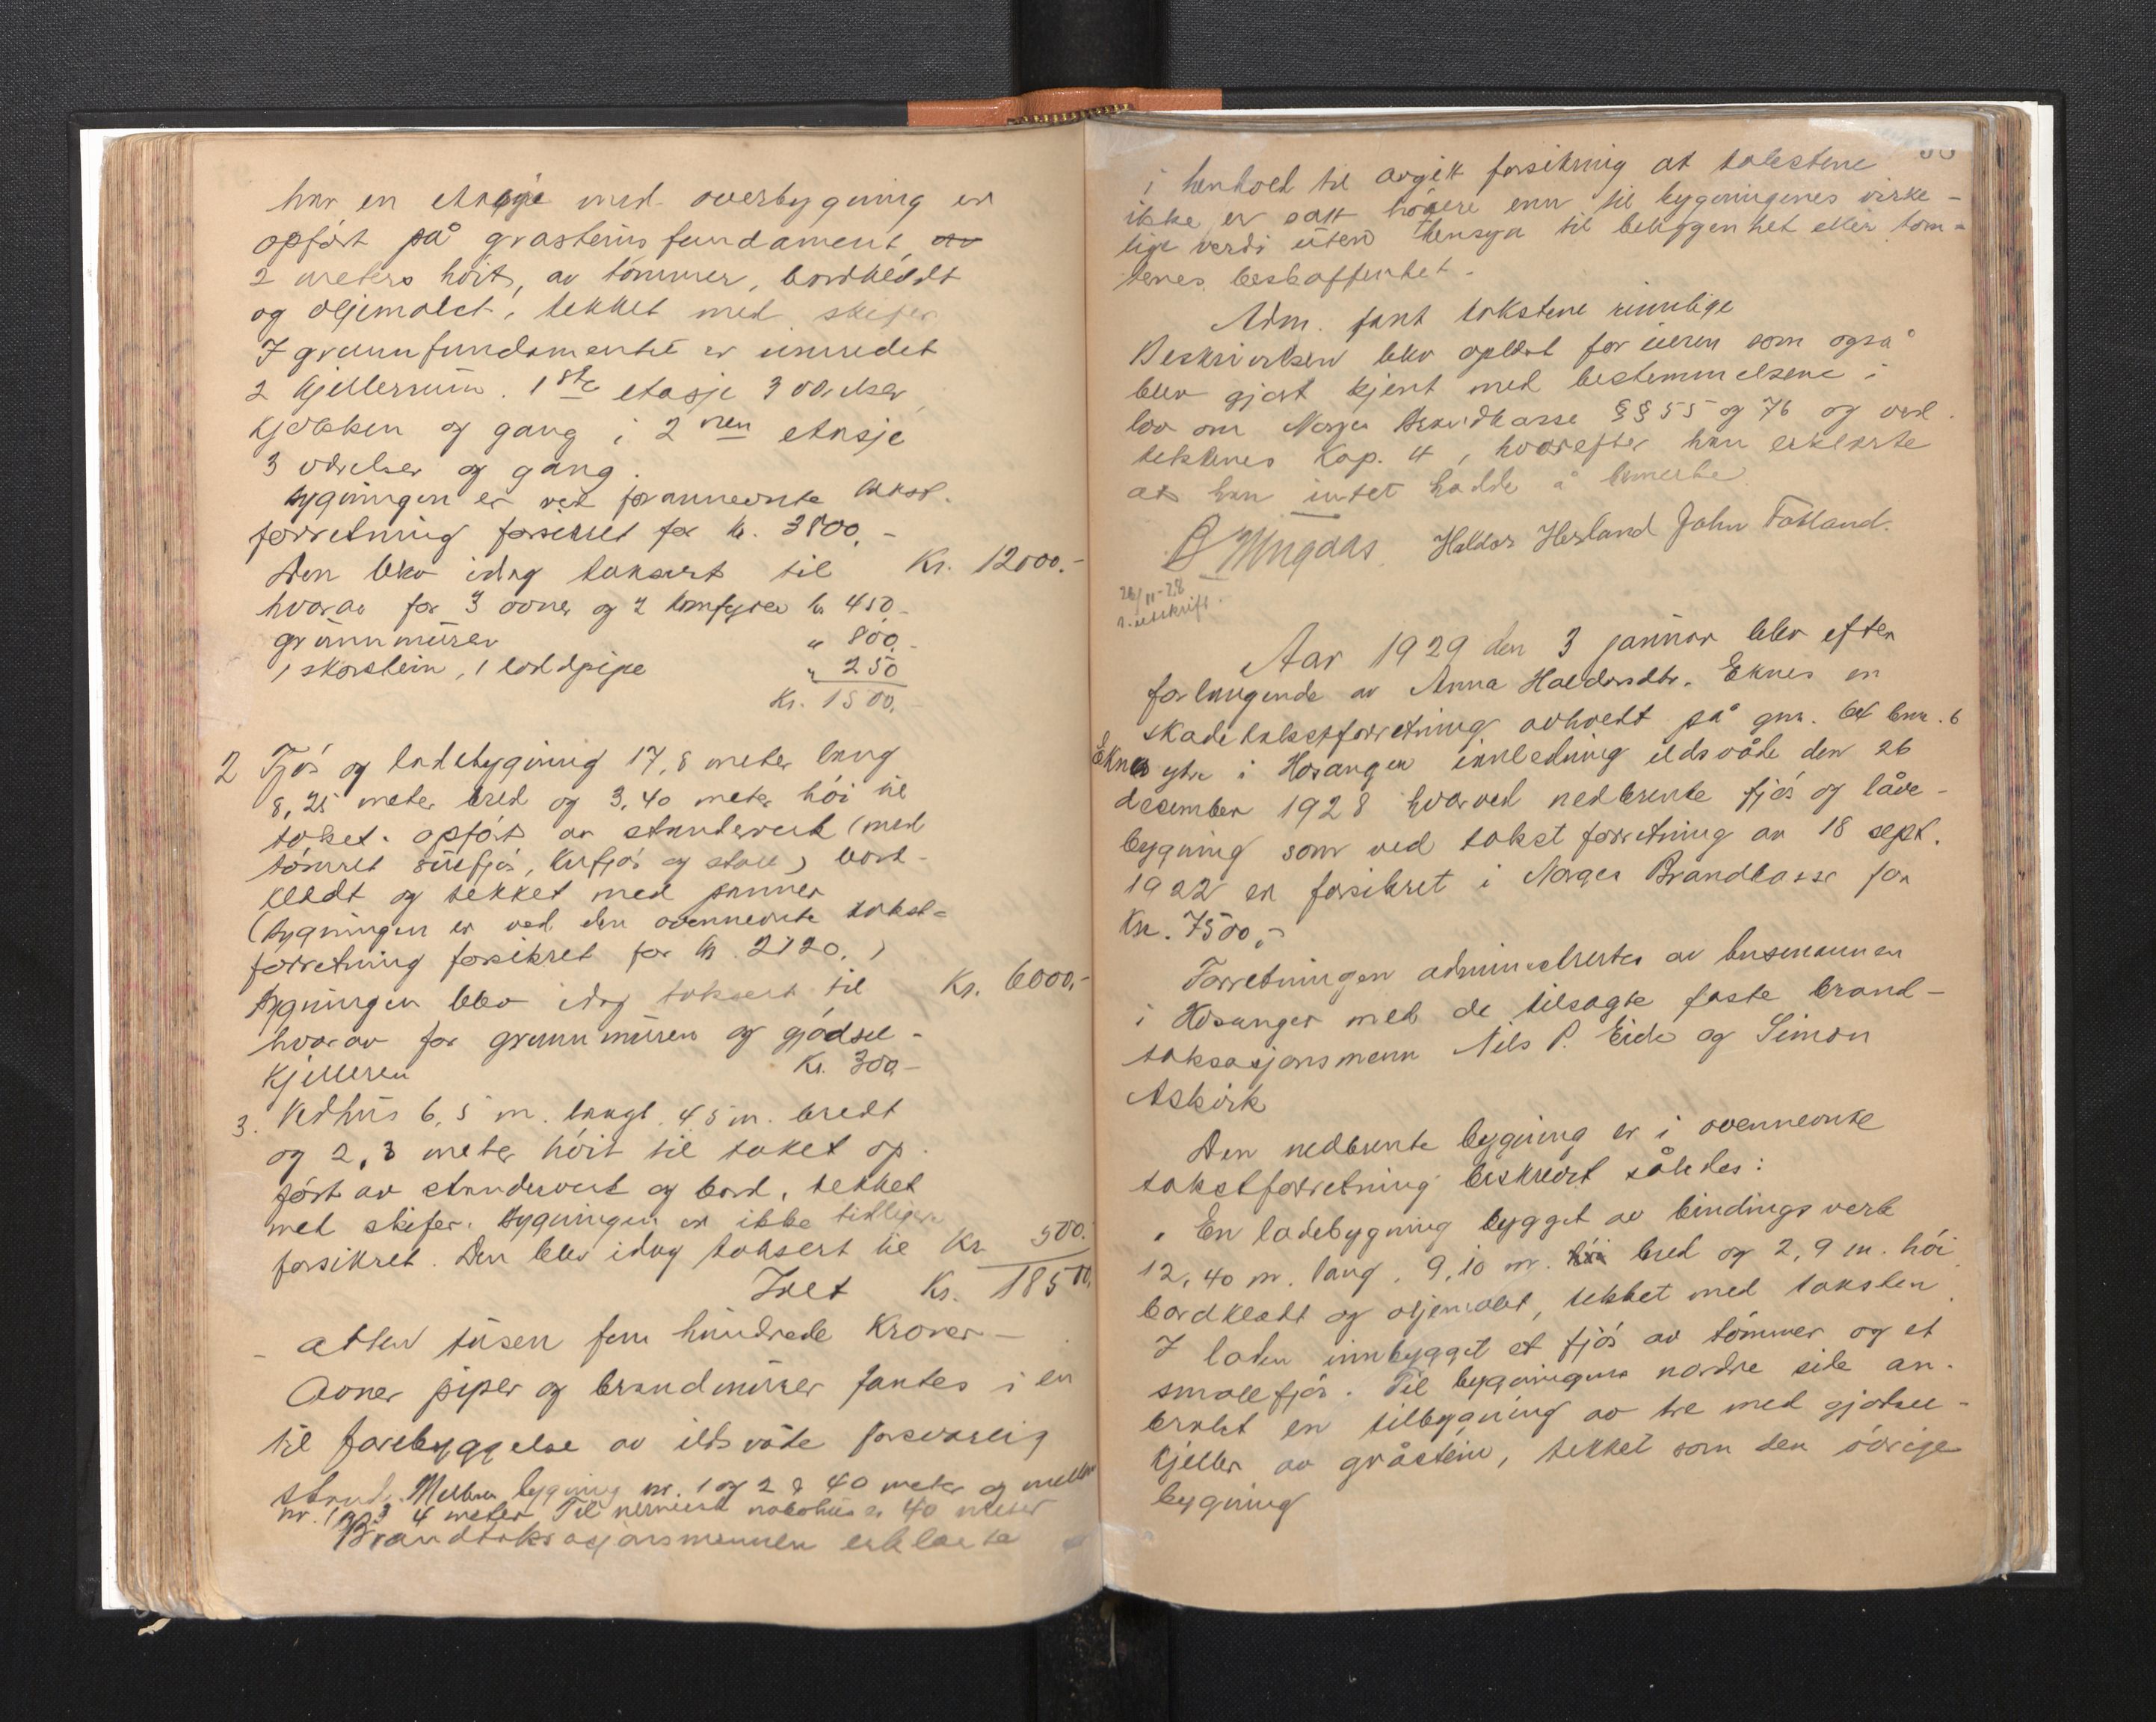 har en etasje med overbygning er
opført på grastens fundament, av
2 meters høit, av tømmer, bordklædt
og oljemalet, tekket med skifer
I grunnfundamentet er innredet
2 kjellerrum. 1ste etasje 3 værelser
kjøkken og gang i 2nen etasje
3 værelser og gang.
Bygningen er ved forannevnte takst-
forretning forsikret for kr. 3800,-
Den blev idag taksert til Kr. 12000.-
hvorav for 3 ovner og 2 komfyrer kr 450,-
grunnmuren " 800,-
1 skorstein, 1 loddpipe " 250
Kr. 1500,-
2 Fjøs og ladebygning 17,8 meter lang
8,25 meter bred og 3,40 meter høi til
taket. opført av standerverk (med
tømret fjøs, kufjøs og stall) bord-
klædt og tekket med panner
(bygningen er ved den ovennevnte takst-
forretning forsikret for kr. 2120,)
Bygningen blev idag taksert til Kr. 6000,-
hvorav for grunnmuren og gjødsel-
kjelleren Kr. 300,-
3. Vedhus 6,5 m. langt, 4,5 m. bredt
og 2,3 meter høit til taket op-
ført av standerverk og bord, tekket
med skifer. Bygningen er ikke tidligere
forsikret. Den blev idag taksert til Kr. 500.-
Ialt Kr. 18500,
- atten tusen fem hundrede Kroner -
Ovner piper og brandmurer fantes i en
til forebyggelse av ildsvåde forsvarlig
stand. Mellem bygning nr. 1 og 2 er 40 meter og mellem
nr. 1 og 3 4 meter. Til nermeste nabohus er 40 meter
Brandtaksasjonsmennen erklærte
i henhold til avgitt forsikring at takstene
ikke er satt høiere enn til bygningenes virke-
lige verdi uten hensyn til beliggenhet eller tom-
tenes beskaffenhet.
Adm. fant takstene rimelige
Beskrivelsen blev oplæst for eieren som også
blev gjort kjent med bestemmelsene i
lov om Norges Brandkasse §§ 55 og 76 og ved-
tektenes Kap. 4, hvorefter han erklærte
at han intet hadde å bemerke
Haldor Herland John Fotland.
26/11-28
utskrift.
Aar 1929 den 3 januar blev efter
forlangende av Anna Haldorsdtr. Eknes en
skadetakstforretning avholdt på gnr. 64 bnr. 6
Eknes ytre i Hosanger innledning ildsvåde den 26
desember 1928 hvorved nedbrente fjøs og låve-
bygning som ved takst forretning av 18 sept.
1922 er forsikret i Norges Brandkasse for
Kr. 7500,-
Forretningen administrertes av lensmannen
i Hosanger med de tilsagte faste brand-
taksasjonsmenn Nils P. Eide og Simon
Askvik
Den nedbrente bygning er i ovennevnte
takstforretning beskrevet således:
" En ladebygning bygget av bindingsverk
12,40 m. lang, 9,10 m. høi bred og 2,9 m. høi
bordklædt og oljemalet, tekket med taksten.
I laden innbygget et fjøs av tømmer og et
smalefjøs. Til bygningens nordre side an-
brakt en tilbygning av tre med gjødsel-
kjeller av gråstein, tekket som den øvrige
bygning